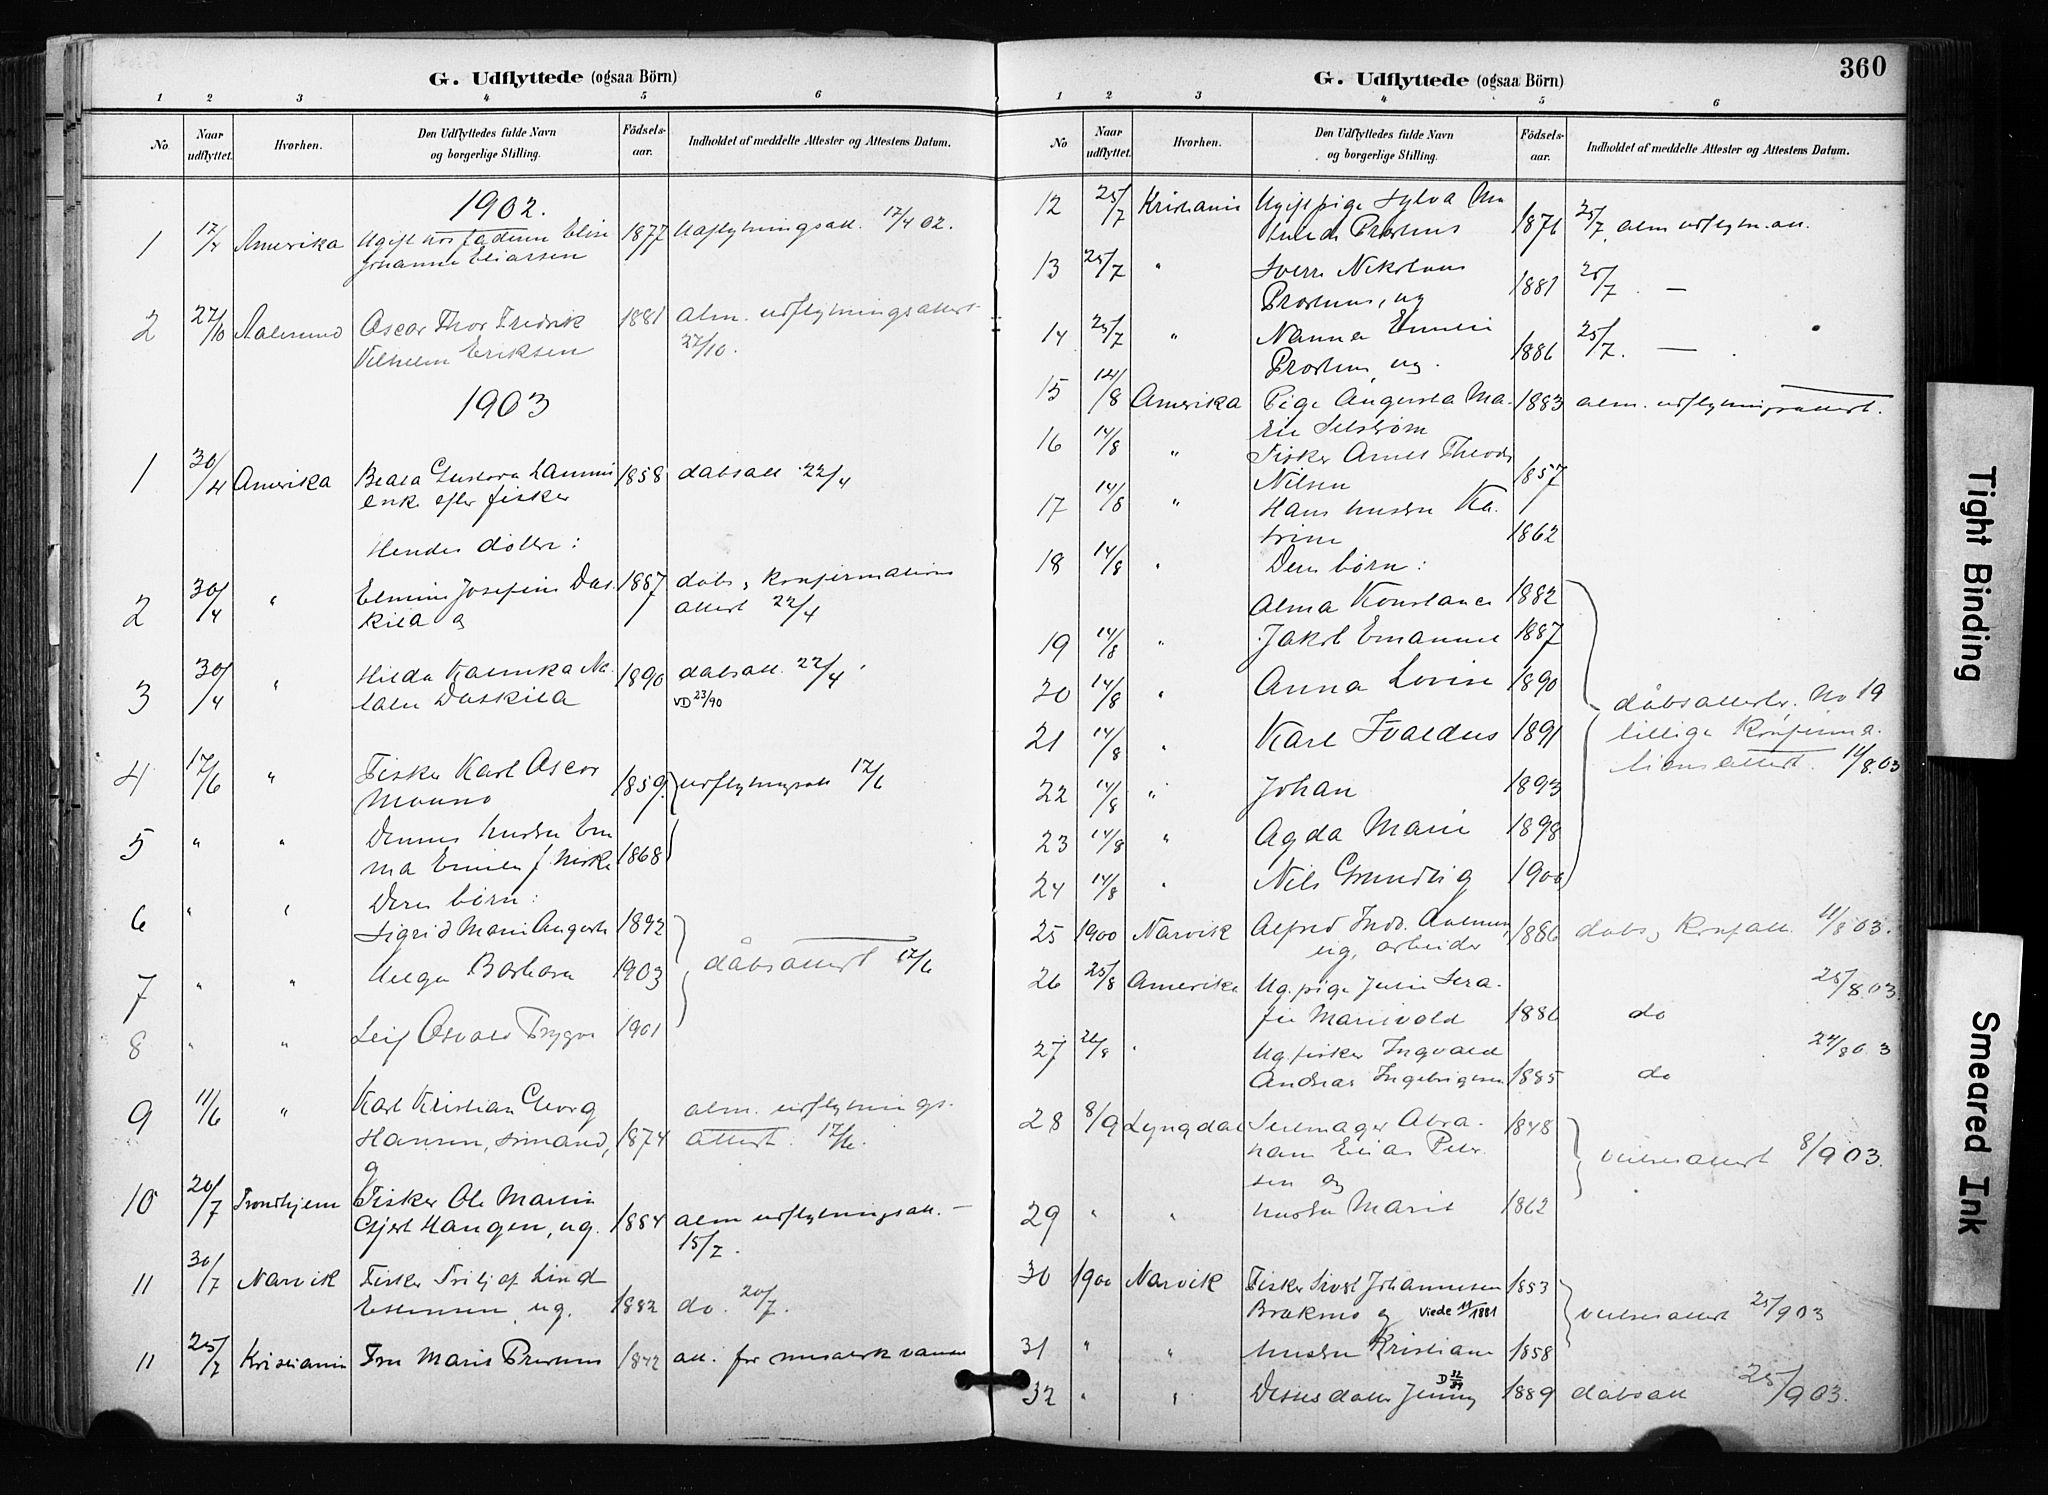 G. Udflyttede (ogsaa Börn)
1 2 3 4 5 6
No. Naar udflyttet. Hvorhen. Den Udflyttedes fulde Navn og borgerlige Stilling. Fødsels-aar. Indholdet af meddelte Attester og Attestens Datum.
1902.
1 17/4 Amerika Ugift Elise 1877 Udflytningsatt. 17/4 02.
Johanne Eliassen
2 27/10 Aalesund Oscar Thor Fredrik 1881 alm. udflytningsattest
Vilhelm Eriksen 27/10.
1903
1 30/4 Amerika Beata Gustava 1858 daabsatt 22/4
enke efter fisker
Hendes døtre:
2 30/4 " Elmine Josefine Das- 1887 daabs og konfirmations
kila og attest 22/4
3 30/4 " Hilda Na- 1890 daabsatt. 22/4
talie Daskila VD 23/90
4 17/6 " Fisker Karl Oscar 1859. udflytngsatt 17/6
5 " " Dennes hustru Em
ma Emilie f. 1868
6 " " Deres børn:
Sigrid Marie Augusta 1892
7 " " Helga Barbara 1903 dåbsattest 17/6
8 " " Leif Osvald Trygve 1901
9 11/6 " Karl Kristian Georg alm. udflytnings-
Hansen, sømand, 1874 attest. 17/6.
10 20/7 Trondhjem Fisker Ole Martin
Gjert Haugen, ug. 1884 alm udflytningsatt. —
15/7.
11 30/7 Narvik Fisker Lind
Estensen, ug. 1882 do. 20/7.
11 25/7 Kristiania Fru Marie 1842 att. for
G. Udflyttede (ogsaa Börn)
360
1 2 3 4 5 6
No Naar udflyttet. Hvorhen. Den Udflyttedes fulde Navn og borgerlige Stilling. Födsels-aar. Indholdet af meddelte Attester og Attestens Datum.
12 25/7 Kristiania Ugift pige Sylva Ma
1876 25/7. alm udflytn. att.
13 25/7 " Sverre Nikolaus
ug 1881 25/7. —
14 25/7 " Nanna Emilie
ug. 1886 25/7. —
15 14/8 Amerika Pige Augusta Ma- 1883 alm. udflytningsattest.
rie Selstrøm
16 14/8 " Fisker Arnet Theodor
Nilsen 1857
17 14/8 " Hans hustru Ka-
trine 1862
18 14/8 " Deres børn:
Alma Konstance 1882
19 14/8 " Jakob Emanuel 1887
20 14/8 " Anna Lovise 1890 dåbsattester. No 19
21 14/8 " Karl Ivaldus 1891 tillige konfirma-
tionsattest. 14/8.03
22 14/8 " Johan 1893
23 14/8 " Agda Marie 1898
24 14/8 " Nils Grundtvig 1900
25 1900 Narvik Alfred
ug, arbeider 1886 daabs, konf att. 11/8 03.
26 25/8 Amerika Ug. pige Julie Sera- 25/8.03
fie Marisvold 1886 do
27 26/8 " Ug. fisker Ingvald 24/8 03
Andreas Ingebrigtsen 1885 do
28 8/9 Lyngdal Seilmager Abra- 1848
ham Elias Peter- vielsesattest 8/9 03.
sen og
29 " " hustru Marit 1862
30 1900 Narvik Fisker Sivert Johannessen 1853
Brækmo og Viede 11/1881 vielsesattest 25/9 03
31 " " hustru Kristiane 1858
32 " " Disses datter Jenny D 12/89 1889 dabsatt 25/9 03.
Tight Binding
Smeared Ink